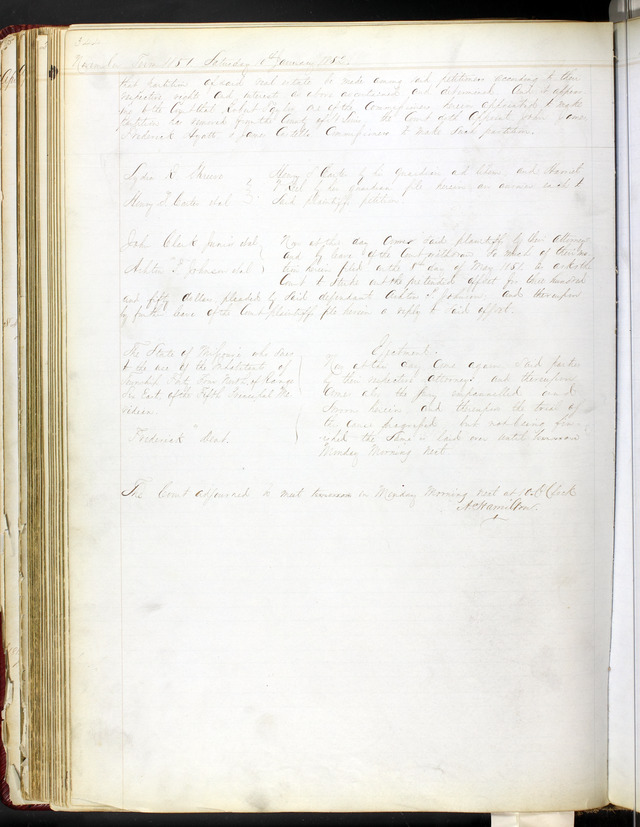 November Term 1851 Saturday 10th January 1852.
that partition of said real estate be made among said petitioners according to their
respective rights and interest as above ascertained and determined. And it appearing
to the Court that Robert one of the Commissioners herein appointed to make
partition has removed from the County of St Louis, the Court doth appoint John
Frederick Hyatt & James Commissioners to make such partition.
Lydia R.
Henry T. Coates et al
Henry T. Coates by his guardian ad litem, and Harriet
T. Bel by her guardian file herein an answer each to
said plaintiffs petition
Josh Clark Junr et al
Ashton P Johnson et al
Now at this day comes said plaintiffs by their attorney
and by leave of the Court withdraw so much of
herein filed on the day of May 1851 as asks the
Court to strike out the pretended offset for three hundred
and fifty dollars pleaded by said defendant Ashton P Johnson and thereupon
by further leave of the Court plaintiffs file herein a reply to said offset.
The State of Missouri who sues
to the use of the Inhabitants of
Township Forty Four North of Range
Six East of the Fifth Principal Me
ridian
vs
Frederick Dent.
Ejectment.
Now at this day come again said parties
by their respective attorneys and thereupon
comes also the jury impannelled and
sworn herein and thereupon the trial of
the cause progressed but not being finis-
shed the same is laid over until
Monday Morning next
The Court adjourned to meet on Monday Morning next at 10 O Clock
A Hamilton.